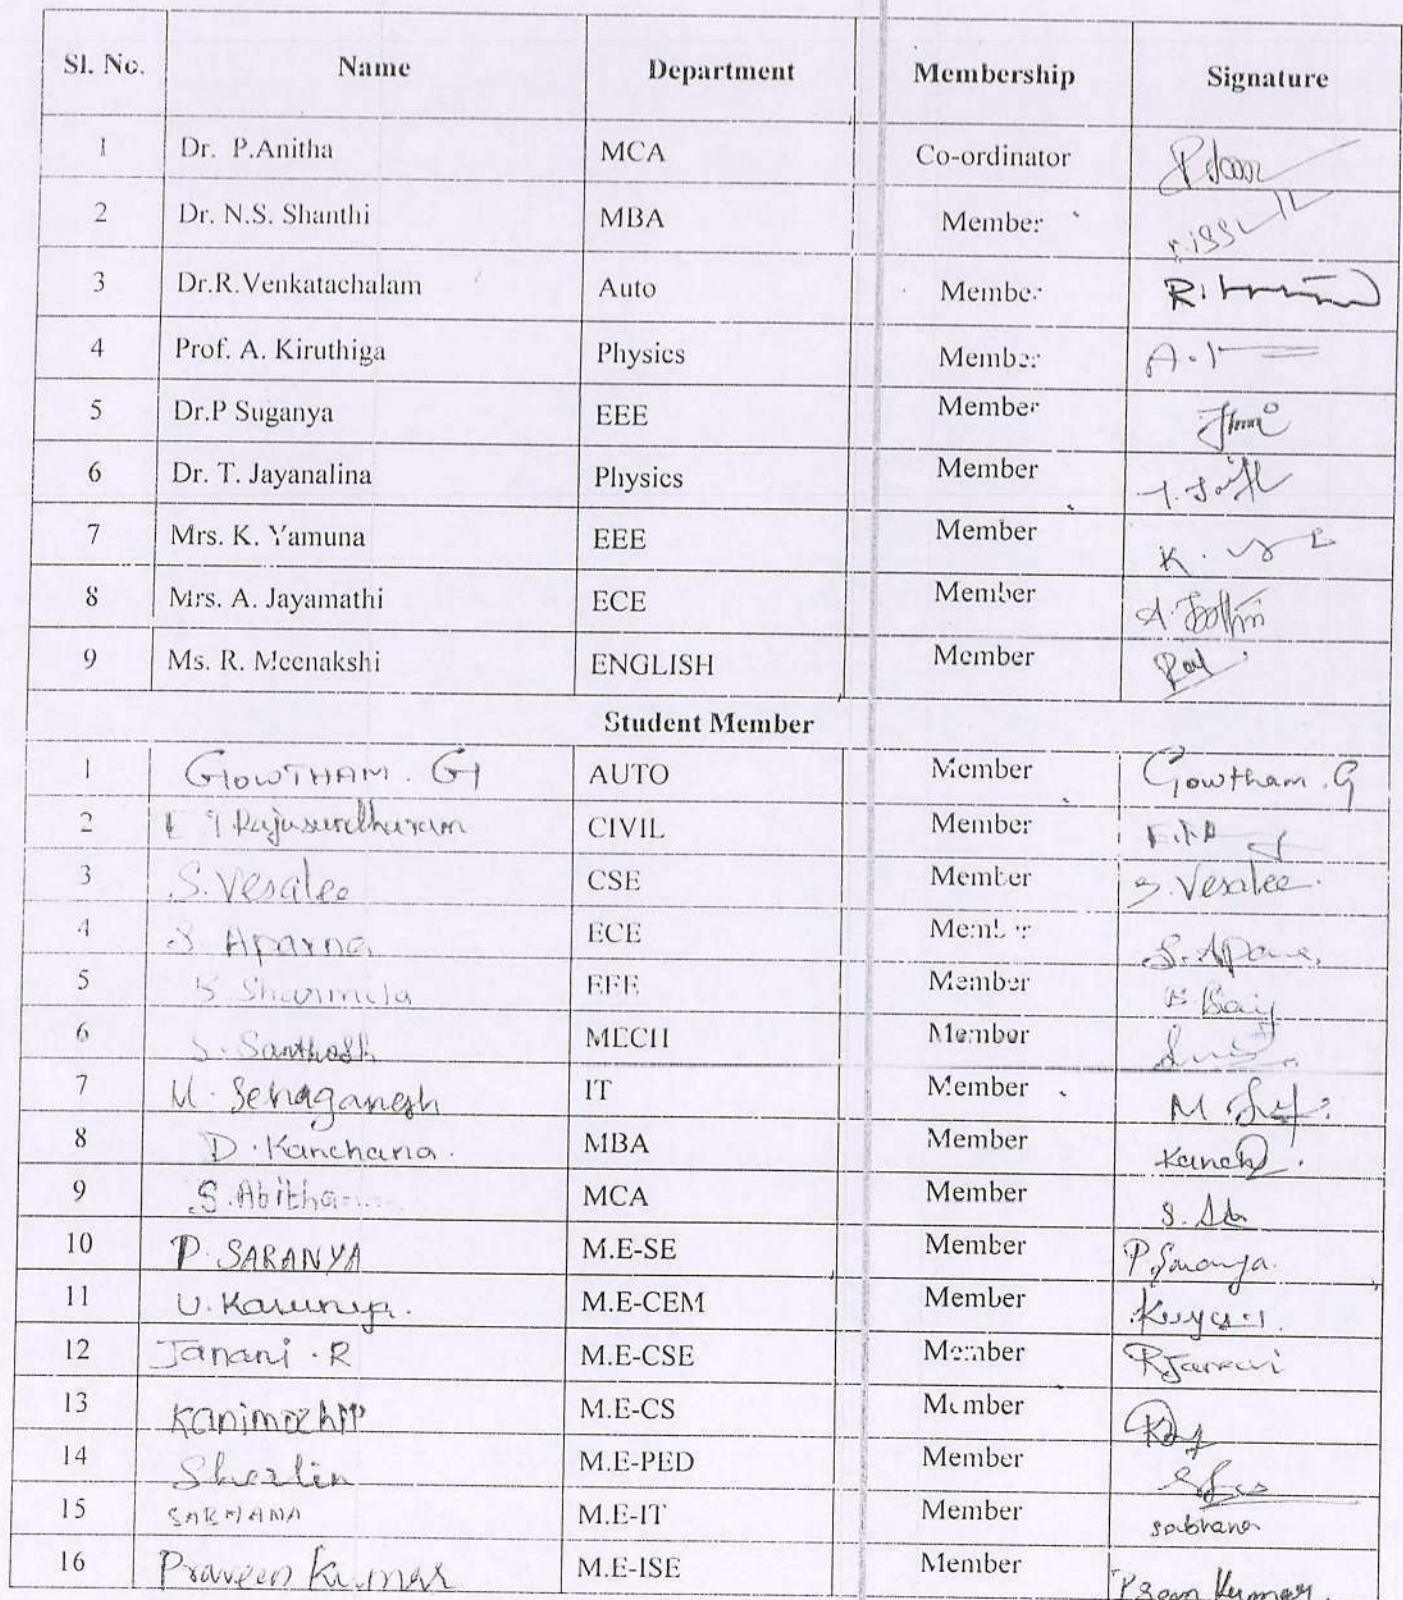 Sl. No. Name Department Membership Signature
1 Dr. P.Anitha MCA Co-ordinator
2 Dr. N.S. Shanthi MBA Member
3 Dr.R.Venkatachalam Auto Member
4 Prof. A. Kiruthiga Physics Member
5 Dr.P Suganya EEE Member
6 Dr. T. Jayanalina Physics Member
7 Mrs. K. Yamuna EEE Member
8 Mrs. A. Jayamathi ECE Member
9 Ms. R. Meenakshi ENGLISH Member
Student Member
1 GOWTHAM. G AUTO Member Gowtham. G
2 CIVIL Member
3 S. Vesalee CSE Member S. Vesalee.
4 S Aparna ECE Member
5 Sharmila EEE Member
6 S. Santhosh MECH Member
7 M. Senaganesh IT Member M
8 D. Kanchana. MBA Member
9 S. Abitha MCA Member
10 P. SARANYA M.E-SE Member P. Saranya.
11 U. Karunya. M.E-CEM Member
12 Janani . R M.E-CSE Member R Janani
13 Kanimozhi P M.E-CS Member
14 Sherlin M.E-PED Member
15 M.E-IT Member sabhana
16 Praveen Kumar M.E-ISE Member Kumar.